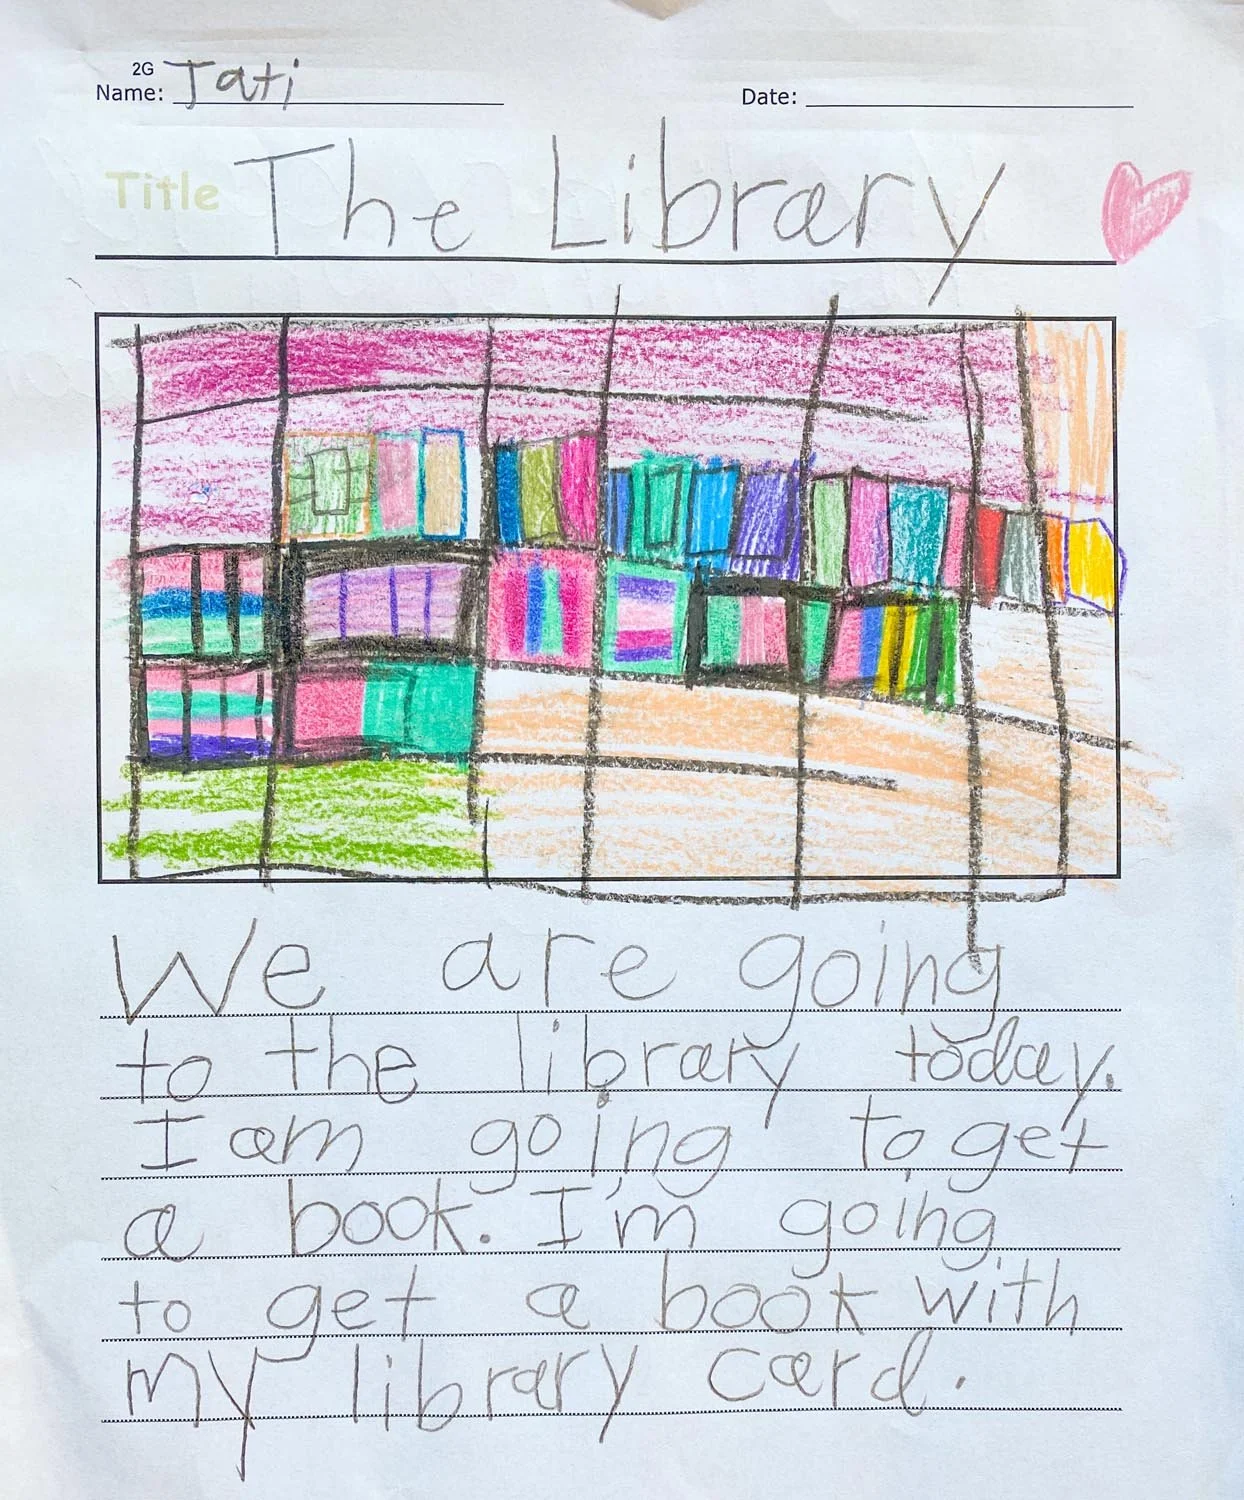 2G
Name: Tati Date:
Title The Library
We are going
to the library today.
I am going to get
a book. I'm going
to get a book with
my library card.